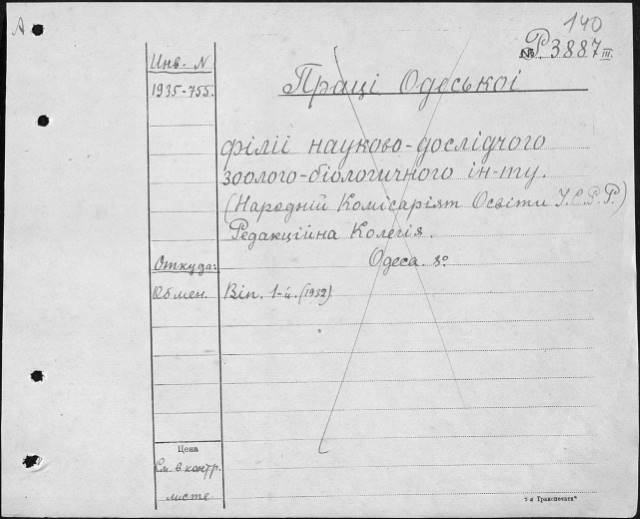 А
140
№ Р.3887 III.
Инв. N
1935-755.
Праці Одеської
філії науково-дослідчого
зоолого-біологичного ін-ту.
(Народній Комісаріят Освіти У.С.Р.Р.)
Редакційна Колегія.
Одеса. 8º
Откуда:
Обмен.
Віп. 1-й. (1932)
Цена
См. в контр.
листе
"1-я Транспечать"